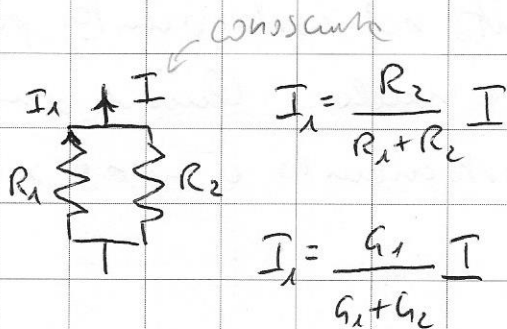 conosciuta
I₁ I
R₁ R₂
I₁ = R₂ / (R₁ + R₂) I
I₁ = G₁ / (G₁ + G₂) I